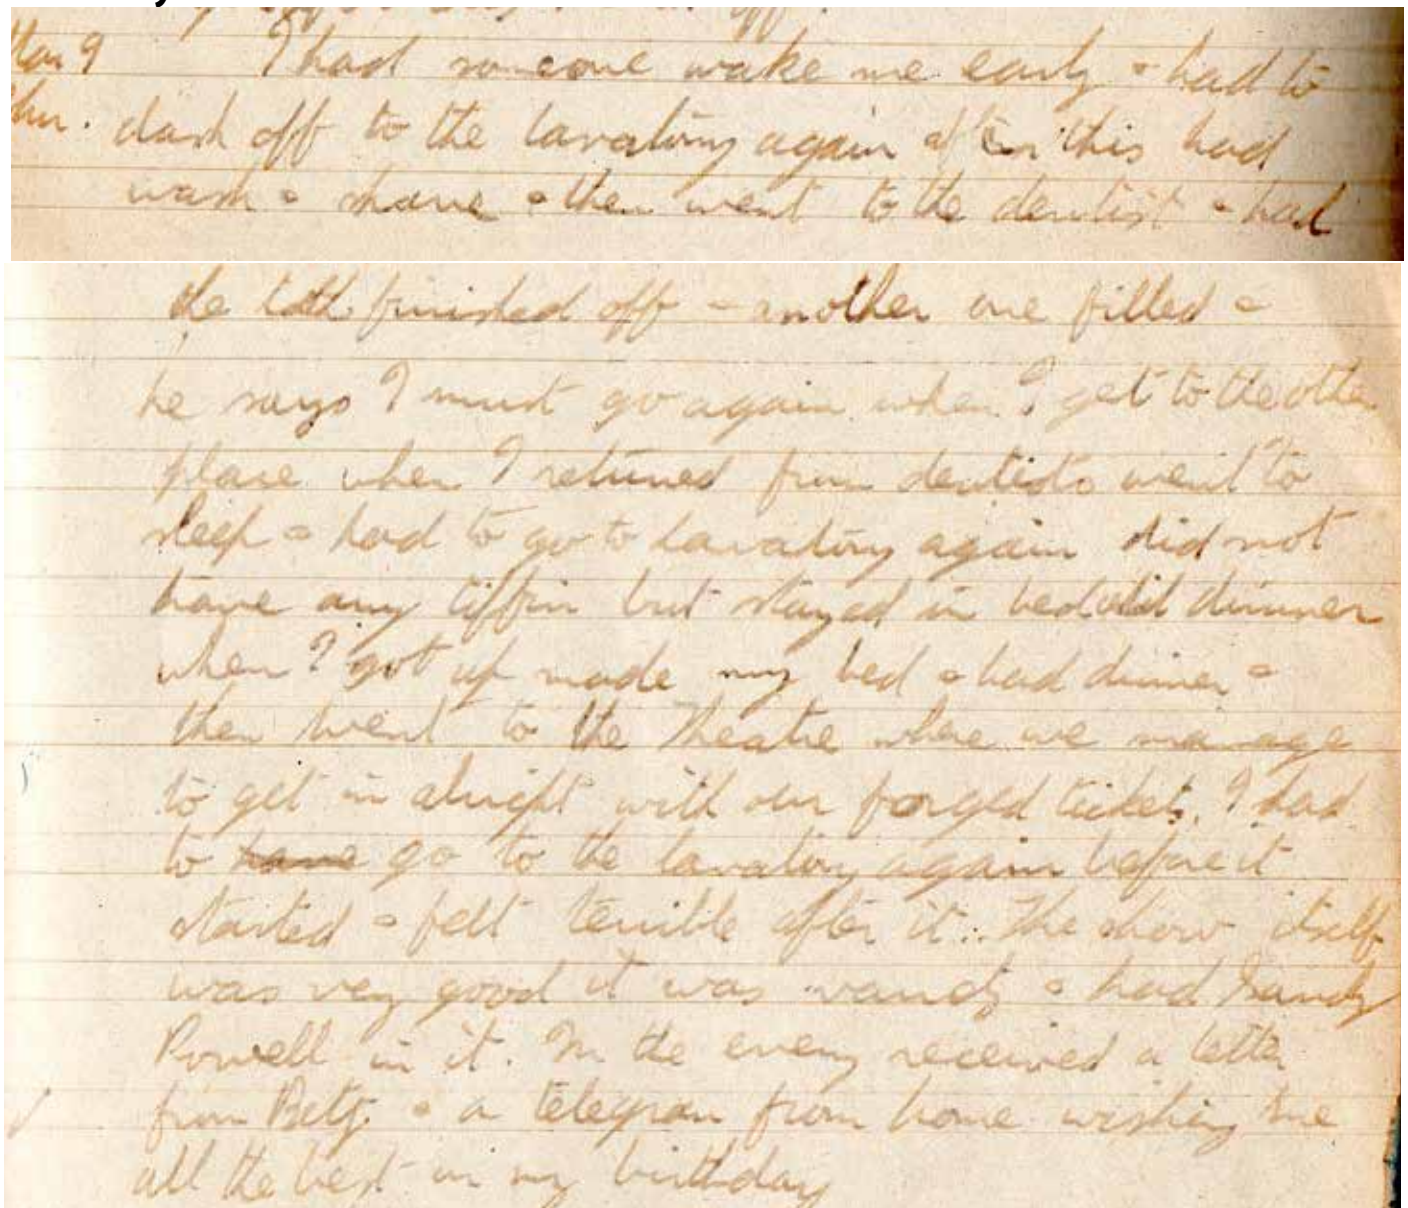 Mar 9 I had someone wake me early & had to
Thur. dash off to the lavatory again after this had
wash & shave & then went to the dentist & had
the tooth finished off & another one filled &
he says I must go again when I get to the other
place when I returned from dentists went to
sleep & had to go to lavatory again did not
have any tiffin but stayed in bed till dinner
when I got up made my bed & had dinner &
then went to the Theatre where we manage
to get in alright with our forged tickets. I had
to have go to the lavatory again before it
started & felt terrible after it. The show itself
was very good it was variety & had Sandy
Powell in it. In the evening received a letter
from Betty & a telegram from home wishing me
all the best in my birthday